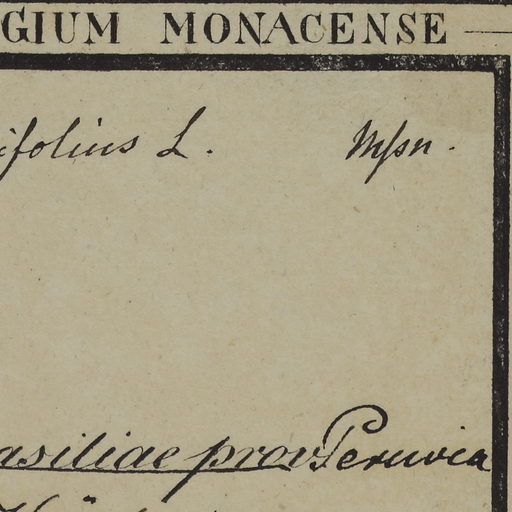 GIUM MONACENSE
ifolius L. Mssn.
asiliae prov Peruvia